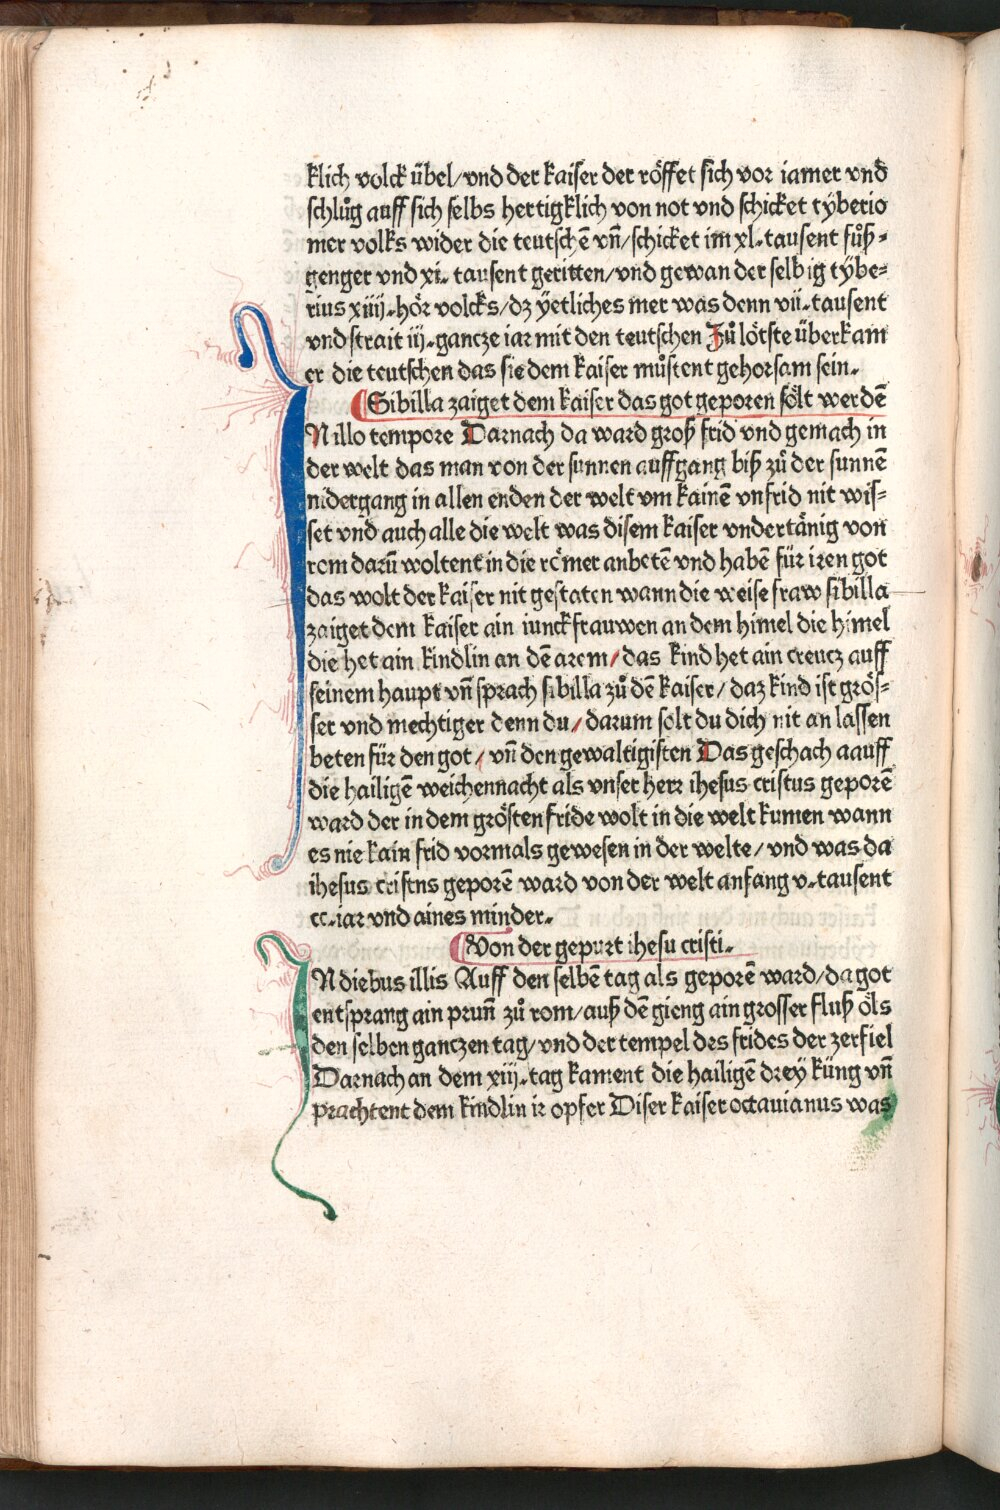 klich volck übel/vnd der kaiser der röffet sich vor iamer vnd
schlůg auff sich selbs hertigklich von not vnd schicket tyberio
mer volks wider die teutschē vn̄/schicket im xl.tausent fůß=
genger vnd xi. tausent geritten/vnd gewan der selbig tybe=
rius xiiij.hör volcks/dz yetliches mer was denn vii.tausent
vnd strait iij.gancze iar mit den teutschen Zů lötste überkam
er die teutschen das sie dem kaiser můstent gehorsam sein.
Sibilla zaiget dem kaiser das got geporen sölt werdē
IN illo tempore Darnach da ward groß frid vnd gemach in
der welt das man von der sunnen auffgang biß zů der sunnē
nidergang in allen enden der welt vm kainē vnfrid nit wis=
set vnd auch alle die welt was disem kaiser vndertänig von
rom darū woltent in die römer anbetē vnd habē für iren got
das wolt der kaiser nit gestaten wann die weise fraw sibilla
zaiget dem kaiser ain iunckfrauwen an dem himel die himel
die het ain kindlin an dē arem/das kind het ain creucz auff
seinem haupt vn̄ sprach sibilla zů dē kaiser/daz kind ist grös=
ser vnd mechtiger denn du/darum solt du dich nit an lassen
beten für den got/vn̄ den gewaltigisten Das geschach aauff
die hailigē weichennacht als vnser herr ihesus cristus geporē
ward der in dem grösten fride wolt in die welt kumen wann
es nie kain frid vormals gewesen in der welte/vnd was da
ihesus cristns geporē ward von der welt anfang v.tausent
cc.iar vnd aines minder.
Von der gepurt ihesu cristi.
IN diebus illis Auff den selbē tag als geporē ward/da got
entsprang ain prun̄ zů rom/auß dē gieng ain grosser fluß öls
den selben ganczen tag/vnd der tempel des frides der zerfiel
Darnach an dem xiij.tag kament die hailigē drey küng vn̄
prachtent dem kindlin ir opfer Diser kaiser octauianus was